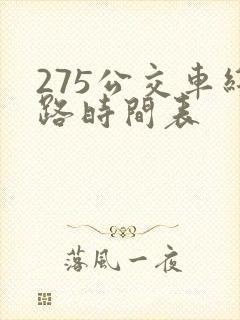 275公交車線
路時間表
落風一夜